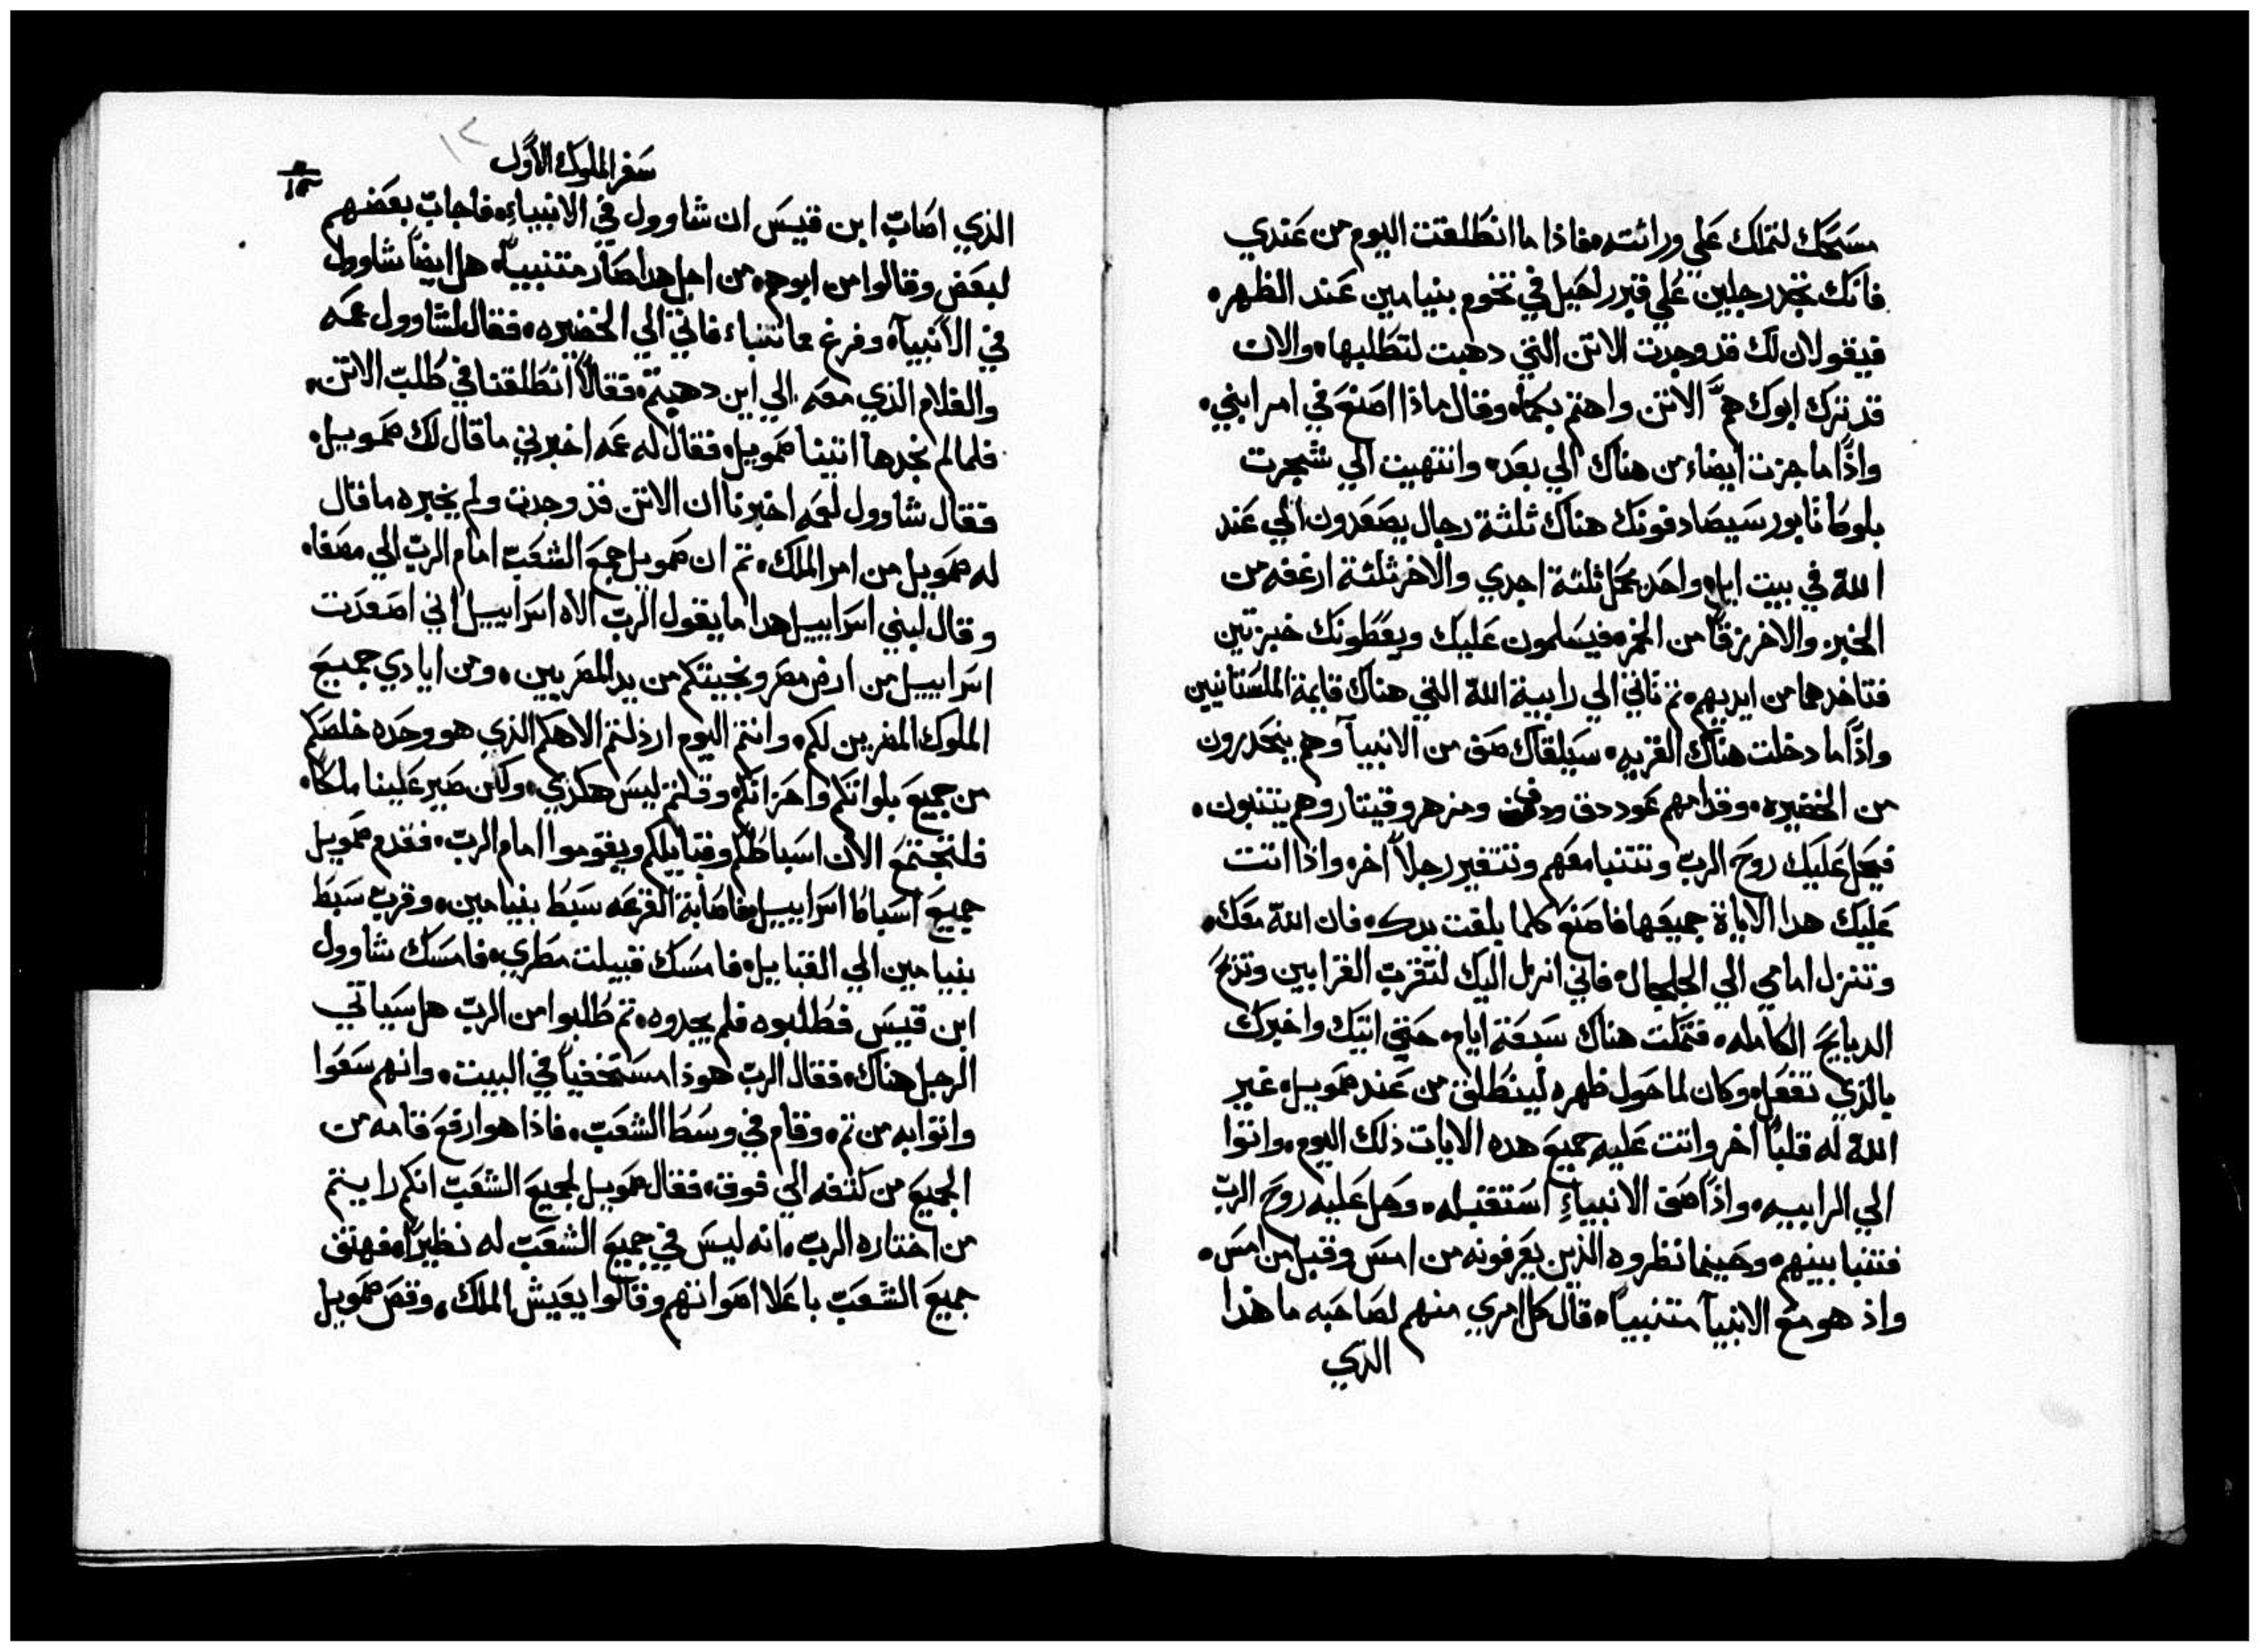 مسحك لتملك علي وراثته، فاذا ما انطلقت اليوم من عندي
فانك تجد رجلين علي قبر راحيل في تخوم بنيامين عند الظهره
فيقولان لك قد وجدت الاتن التي دهبت لتطلبها، والان
قد ترك ابوك هم الاتن واهتم بكما، وقال ماذا اصنع في امر ابني،
واذا ما جزت ايضاء من هناك الي بعد، وانتهيت الي شجرت
بلوطا تابور سيصادفونك هناك ثلثة رجال يصعدون الي عند
الله في بيت ايل، واحد يحمل ثلثة اجدي والاخر ثلثة ارغفه من
الخبز، والاخر زقا من الخمر، فيسلمون عليك ويعطونك خبزتين
فتاخدهما من ايديهم، تم تاتي الي رابية الله التي هناك قايمة الملستانيين
واذا ما دخلت هناك القريه، سيلقاك صف من الانبيآ وهم ينحدرون
من الخضيره، وقدامهم عود دق ودف ومزهر وقيتار وهم يتنبون،
فيحل عليك روح الرب وتتنبا معهم وتتغير رجلاً اخر، واذا اتت
عليك هدا الاياة جميعها فاصنع كلما بلغت يدك، فان الله معك،
وتنزل امامي الي الجلجال، فاني انزل اليك لتقرب القرابين وتزبح
الدبايح الكامله، فتمكت هناك سبعة ايام، حتي اتيك واخبرك
بالذي تفعل، وكان لما حول ظهره لينطلق من عند صمويل، غير
الله له قلباً اخر واتت عليه جميع هده الايات ذلك اليوم، واتوا
الي الرابيه، واذا صف الانبياءِ استقبله، وحل عليه روح الرب
فتنبا بينهم، وحينما نظروه الذين يعرفونه من امس وقبل من امس،
واذ هو مع الانبيآ متنبياً، قال كل امري منهم لصاحبه ما هذا
الذي
سفر الملوك الاول
١٢
الذي اصاب ابن قيس ان شاوول في الانبياءِ، فاجاب بعضهم
لبعض وقالوا من ابوهم، من اجل هدا صار متنبياً، هل ايضاً شاوول
في الانبيآء وفرغ مما تنباء فاتي الي الخضيره، فقال لشاوول عمه
والغلام الذي معه الي اين دهبتم، فقالا انطلقنا في طلب الاتن،
فلما لم نجدها اتينا صمويل، فقال له عمه اخبرني ما قال لك صمويل،
فقال شاوول لعمه اخبرنا ان الاتن قد وجدت ولم يخبره ما قال
له صمويل من امر الملك، تم ان صمويل جمع الشعب امام الرب الي مصفا،
وقال لبني اسراييل هدا ما يقول الرب الاه اسراييل اني اصعدت
اسراييل من ارض مصر ونجيتكم من يد المصريين، ومن ايادي جميع
الملوك المضرين لكم، وانتم اليوم ارذلتم الاهكم الذي هو وحده خلصكم
من جميع بلواتكم واحزانكم، وقلتم ليس هكدي، ولكن صير علينا ملكاً،
فلتجتمع الان اسباطكم وقبايلكم ويقوموا امام الرب، فقدم صمويل
جميع اسباط اسراييل، فاصابة القرعه سبط بنيامين، وقرب سبط
بنيامين الي القبايل، فامسك قبيلت مطري، فامسك شاوول
ابن قيس فطلبوه فلم يجدوه، تم طلبوا من الرب هل سياتي
الرجل هناك، فقال الرب هوذا مستخفياً في البيت، وانهم سعوا
واتوا به من تم، وقام في وسط الشعب، فاذا هو ارفع قامه من
الجميع من كتفه الي فوق، فقال صمويل لجميع الشعب انكم رايتم
من اختاره الرب، انه ليس في جميع الشعب له نظيراً، فهتف
جميع الشعب باعلا اصواتهم وقالوا يعيش الملك، وقص صمويل